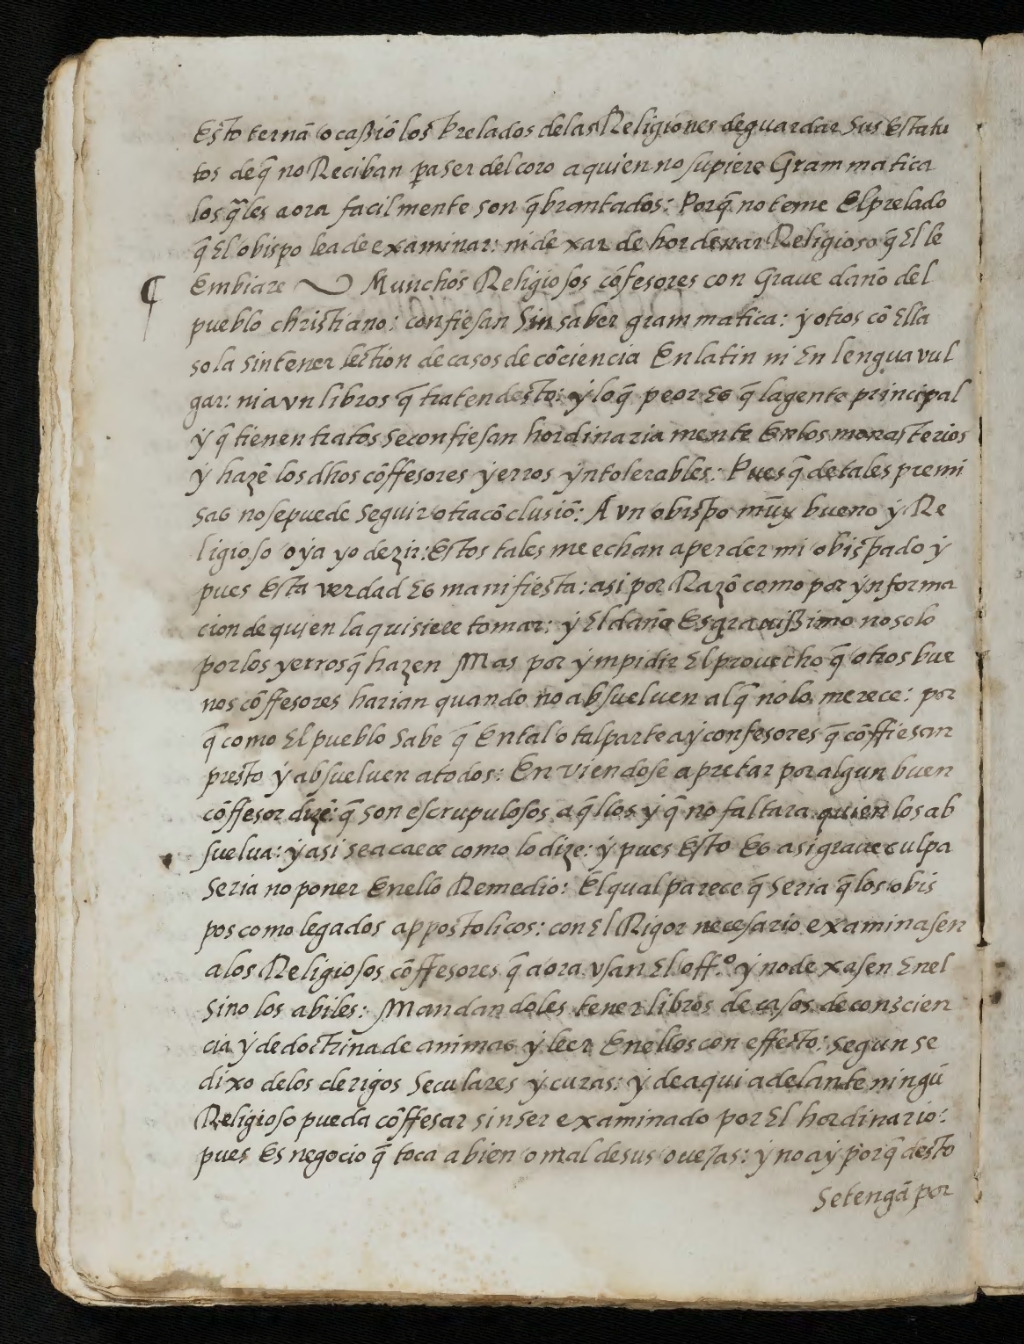 Esto ternā ocaßiō los Prelados delas Religiones deguardar sus Estatu
tos de q̄ no Reciban pa ser del coro a quien no supiere Grammatica
los q̄les aora facilmente son q̄brantados: Porq̄ no teme El prelado
q̄ El obispo lea de examinar: ni dexar de hordenar Religioso q̄ El le
Embiare Munchos Religiosos cōfesores con Graue daño del
pueblo christiano: confiesan Sin saber grammatica: y otros cō Ella
sola sin tener lection de casos de cōciencia En latin ni En lengua vul
gar: ni avn libros q̄ traten desto: ẏ lo q̄ peor Es q̄ la gente principal
ẏ q̄ tienen tratos se confiesan hordinariamente En los monasterios
ẏ hazē los dhos cōffesores ẏerros ẏntolerables: Pues q̄ de tales premi
sas no se puede seguir otra cōclusiō: A vn obispo mūy bueno ẏ Re
ligioso oẏa yo dezir: Estos tales me echan a perder mi obispado ẏ
pues Esta verdad Es manifiesta: asi por Razō como por ẏnforma
cion de quien la quisiere tomar: ẏ El daño Es grauißimo no solo
por los yerros q̄ hazen Mas por ẏmpidir El prouecho q̄ otros bue
nos cōffesores harian quando no absueluen al q̄ no lo merece: por
q̄ como El pueblo sabe q̄ En tal o tal parte aẏ confesores q̄ cōffiesan
presto ẏ absueluen a todos: En viendose apretar por algun buen
cōffesor dizē: q̄ son escrupulosos aq̄llos ẏ q̄ no faltara quien los ab
suelua: ẏ asi se acaece como lo dizē: ẏ pues Esto Es asi graue culpa
seria no poner En ello Remedio: El qual parece q̄ seria q̄ los obis
pos como legados appostolicos: con El Rigor necesario examinasen
a los Religiosos cōffesores q̄ aora vsan El off.º ẏ no dexasen En el
Sino los abiles: Mandandoles tener libros de casos de conscien
cia ẏ de doctrina de animas ẏ leer En ellos con effecto: segun se
dixo delos clerigos Seculares ẏ curas: ẏ de aqui adelante ningū
Religioso pueda cōffesar sin ser examinado por El hordinario:
pues Es negocio q̄ toca a bien o mal de sus ouejas: ẏ no aẏ porq̄ desto
Se tengā por